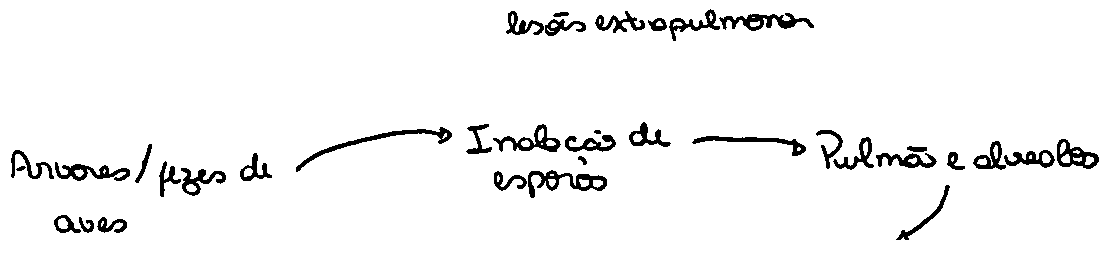 lesões extrapulmonar
Árvores/fezes de
aves
Inalação de
esporos
Pulmão e alveolos